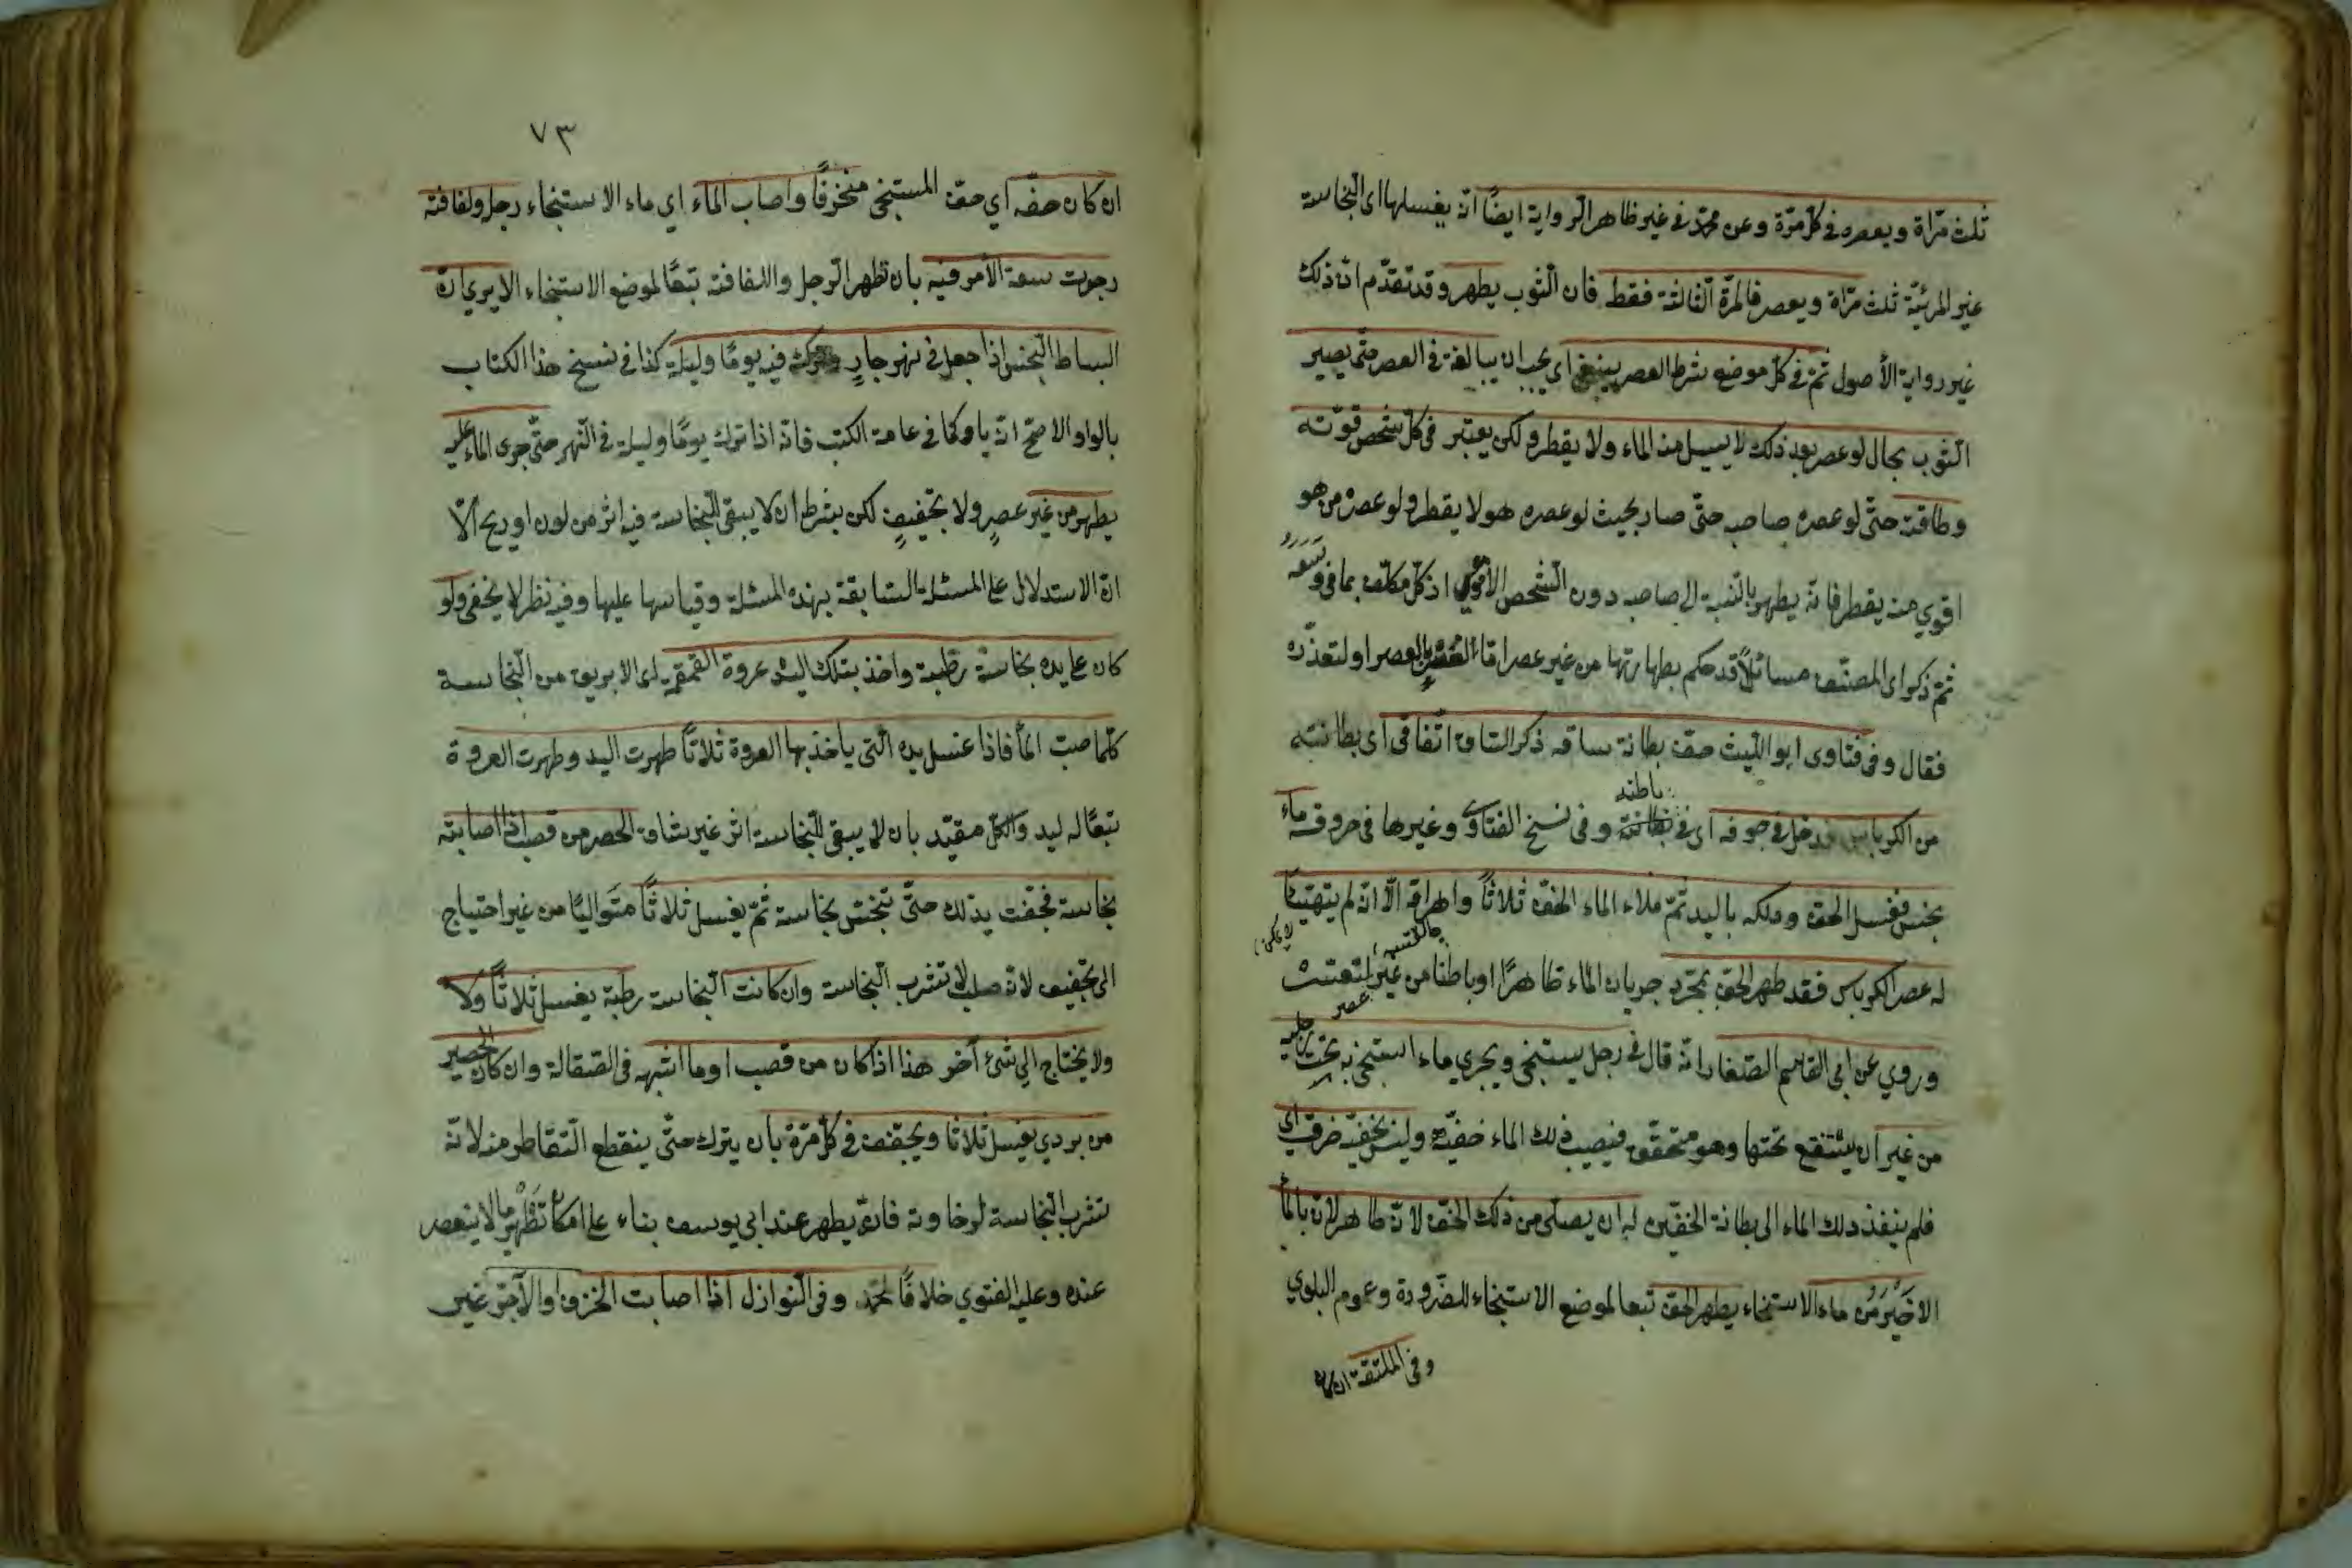 ثلث مرّاة ويعصره في كلّ مرّة وعن محمّد في غير ظاهر الرواية ايضًا انّه يغسلها اى النّجاسة
غير المرئيّة ثلث مرّاة ويعصر في المرّة الثّالثة فقط فان الثّوب يطهر وقد تقدّم انّ ذلك
غير رواية الأصول ثمّ في كلّ موضع شرط العصر ينبغي اي يجب ان يبالغ في العصر حتّى يصير
الثّوب بحال لو عصر بعد ذلك لا يسيل منه الماء ولا يقطر ولكن يعتبر في كلّ شخص قوّته
وطاقته حتّى لو عصره صاحبه حتّى صار بحيث لو عصره هو لا يقطر ولو عصره من هو
اقوي منه يقطر فانّه يطهر بالنّسبة الى صاحبه دون الشّخص الأقوي اذ كلّ مكلّف بما في وسعه
ثمّ ذكر اى المصنّف مسائلًا قد حكم بطهارتها من غير عصر امّا بالعصر او لتعذّره
فقال وفي فتاوى ابو اللّيث خفّ بطانة ساقه ذكر السّاق اتّفاقي اى بطانته
من الكرباس فدخل في جوفه اى في باطنه وفي نسخ الفتاوى وغيرها في خروقه ماء
نجس فغسل الخفّ ودلكه باليد ثمّ ملاء الماء الخفّ ثلاثًا واهراقه الّا انّه لم يتهيّأ
له عصر الكرباس فقد طهر الخفّ بمجرّد جريان الماء ظاهرًا او باطنا من غير
وروي عن ابي القاسم الصّفّار انّه قال في رجل يستنجي ويجري ماء استنجائه تحت رجليه
من غير ان يستنقع تحتها وهو متخفّف فيصيب ذلك الماء خفّيه وليس بخفّيه خرق اي
فلم ينفذ ذلك الماء الى بطانة الخفّين له ان يصلّي من ذلك الخفّ لانّه طاهر لانّ بالماء
الاخير من ماء الاستنجاء يطهر الخفّ تبعا لموضع الاستنجاء للضّرورة وعموم البلوي
وفي الملتقة ان كان
٧٣
ان كان خفّه اي خفّ المستنجي منخرقًا واصاب الماء اي ماء الاستنجاء رجله ولفافته
رجوت سعة الأمر فيه بان تطهر الرّجل واللفافة تبعًا لموضع الاستنجاء الا يري انّ
البساط النّجس اذا جعل في نهر جارٍ وترك فيه يومًا وليلة كذا في نسخ هذا الكتاب
بالواو والاصحّ انّه باو كما في عامة الكتب فانّه اذا ترك يومًا وليلة في النّهر حتّى جرى الماء عليه
يطهر من غير عصرٍ ولا تجفيفٍ لكن بشرط ان لا يبقي للنّجاسة فيه اثر من لون او ريح الّا
انّ الاستدلال على المسئلة السّابقة بهذه المسئلة وقياسها عليها وفيه نظر لا يخفى ولو
كان على يده نجاسة رطبة واخذ بتلك اليد عروة القمقمه اى الابريق من النّجاسة
كلّما صبّ الماء فاذا غسل يده الّتي ياخذ بها العروة ثلاثًا طهرت اليد وطهرت العروة
تبعًا له ليد والكلّ مقيّد بان لا يبقي للنّجاسة اثر غير شاق الحصر من قصب اذا اصابته
نجاسة فجففت يدلك حتّى تنحت نجاسة ثمّ يغسل ثلاثًا متواليًا من غير احتياج
الى تجفيف لانه صلب لا تتشرب النّجاسة وان كانت النّجاسة رطبة يغسل ثلاثًا ولا
ولا يحتاج الي شئ آخر هذا اذا كان من قصب او ما اشبهه في الصّقالة وان كان الحصير
من بردي يغسل ثلاثا ويجفّف في كلّ مرّة بان يترك حتّى ينقطع التّقاطر منه لانّه
تتشرب النّجاسة لرخاوته فانّه يطهر عند ابي يوسف بناء على امكان تطهير ما لا ينعصر
عنده وعليه الفتوي خلافًا لمحمّد وفي النّوازل اذا اصابت الخزف او الآجر غير